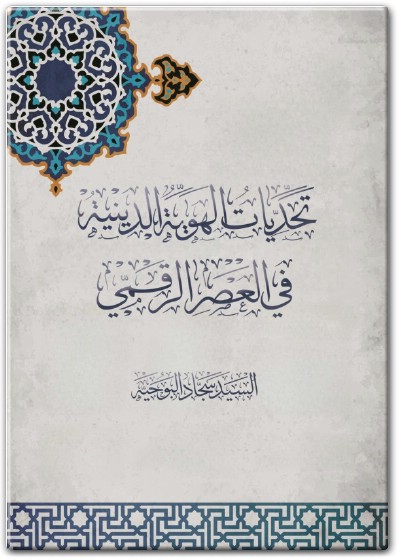 تحديات الهويّة الدينية
في العصر الرقميّ
السيد سجاد البوحية